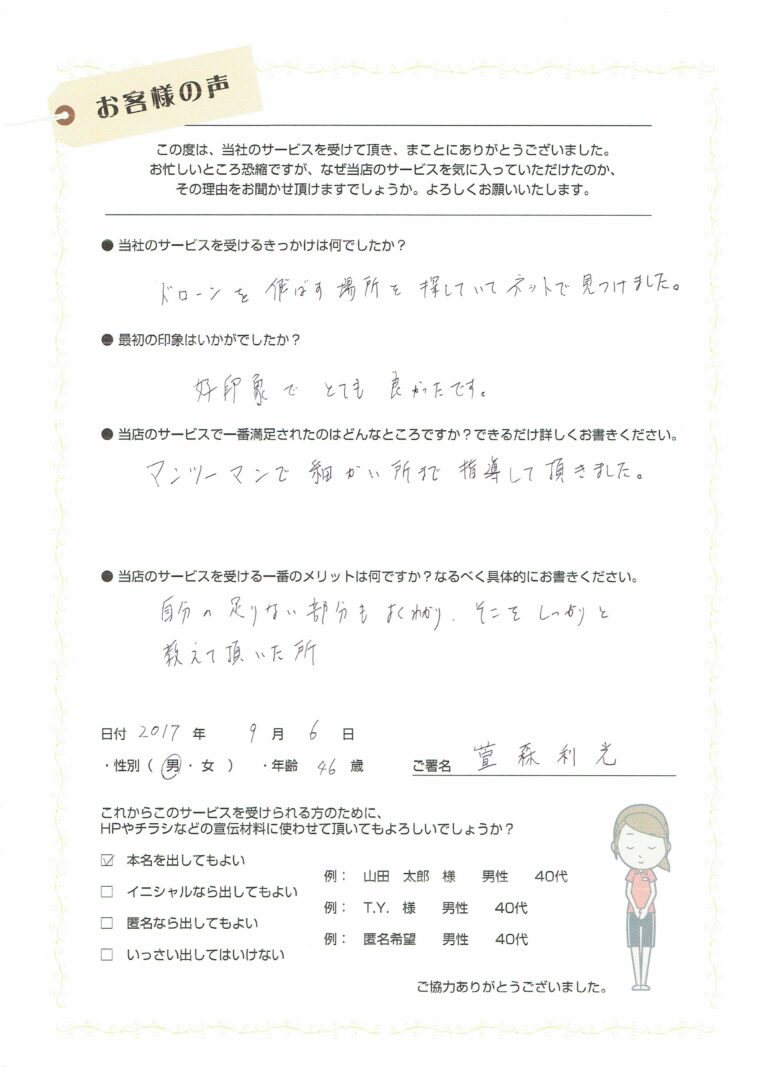 お客様の声
この度は、当社のサービスを受けて頂き、まことにありがとうございました。
お忙しいところ恐縮ですが、なぜ当店のサービスを気に入っていただけたのか、
その理由をお聞かせ頂けますでしょうか。よろしくお願いいたします。
● 当社のサービスを受けるきっかけは何でしたか？
ドローンを飛ばす場所を探していてネットで見つけました。
● 最初の印象はいかがでしたか？
好印象でとても良かったです。
● 当店のサービスで一番満足されたのはどんなところですか？できるだけ詳しくお書きください。
マンツーマンで細かい所まで指導して頂きました。
● 当店のサービスを受ける一番のメリットは何ですか？なるべく具体的にお書きください。
自分の足りない部分もよくわかり、そこをしっかりと
教えて頂いた所
日付 2017 年 9 月 6 日
・性別（ 男 ・ 女 ） ・年齢 46 歳 ご署名 萱森利光
これからこのサービスを受けられる方のために、
HPやチラシなどの宣伝材料に使わせて頂いてもよろしいでしょうか？
☑ 本名を出してもよい 例： 山田 太郎 様 男性 40代
□ イニシャルなら出してもよい 例： T.Y. 様 男性 40代
□ 匿名なら出してもよい 例： 匿名希望 男性 40代
□ いっさい出してはいけない
ご協力ありがとうございました。